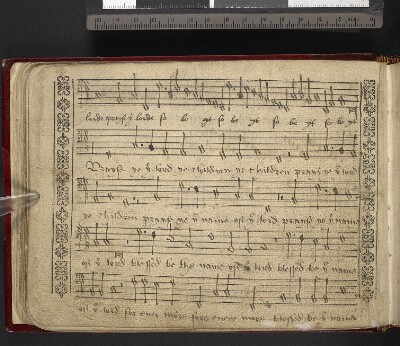 lorde prayse yͤ lorde so be yt so be yt so be yt so be yt
Prayse ye yͤ lord ye children ye children prayse ye yͤ lord
ye children prayse ye yͤ name off yͤ lord prayse ye yͤ name
off yͤ lord blessed be the name off yͤ lord blessed be yͤ name
off yͤ lord for ever more for evere more blessed be yͤ name